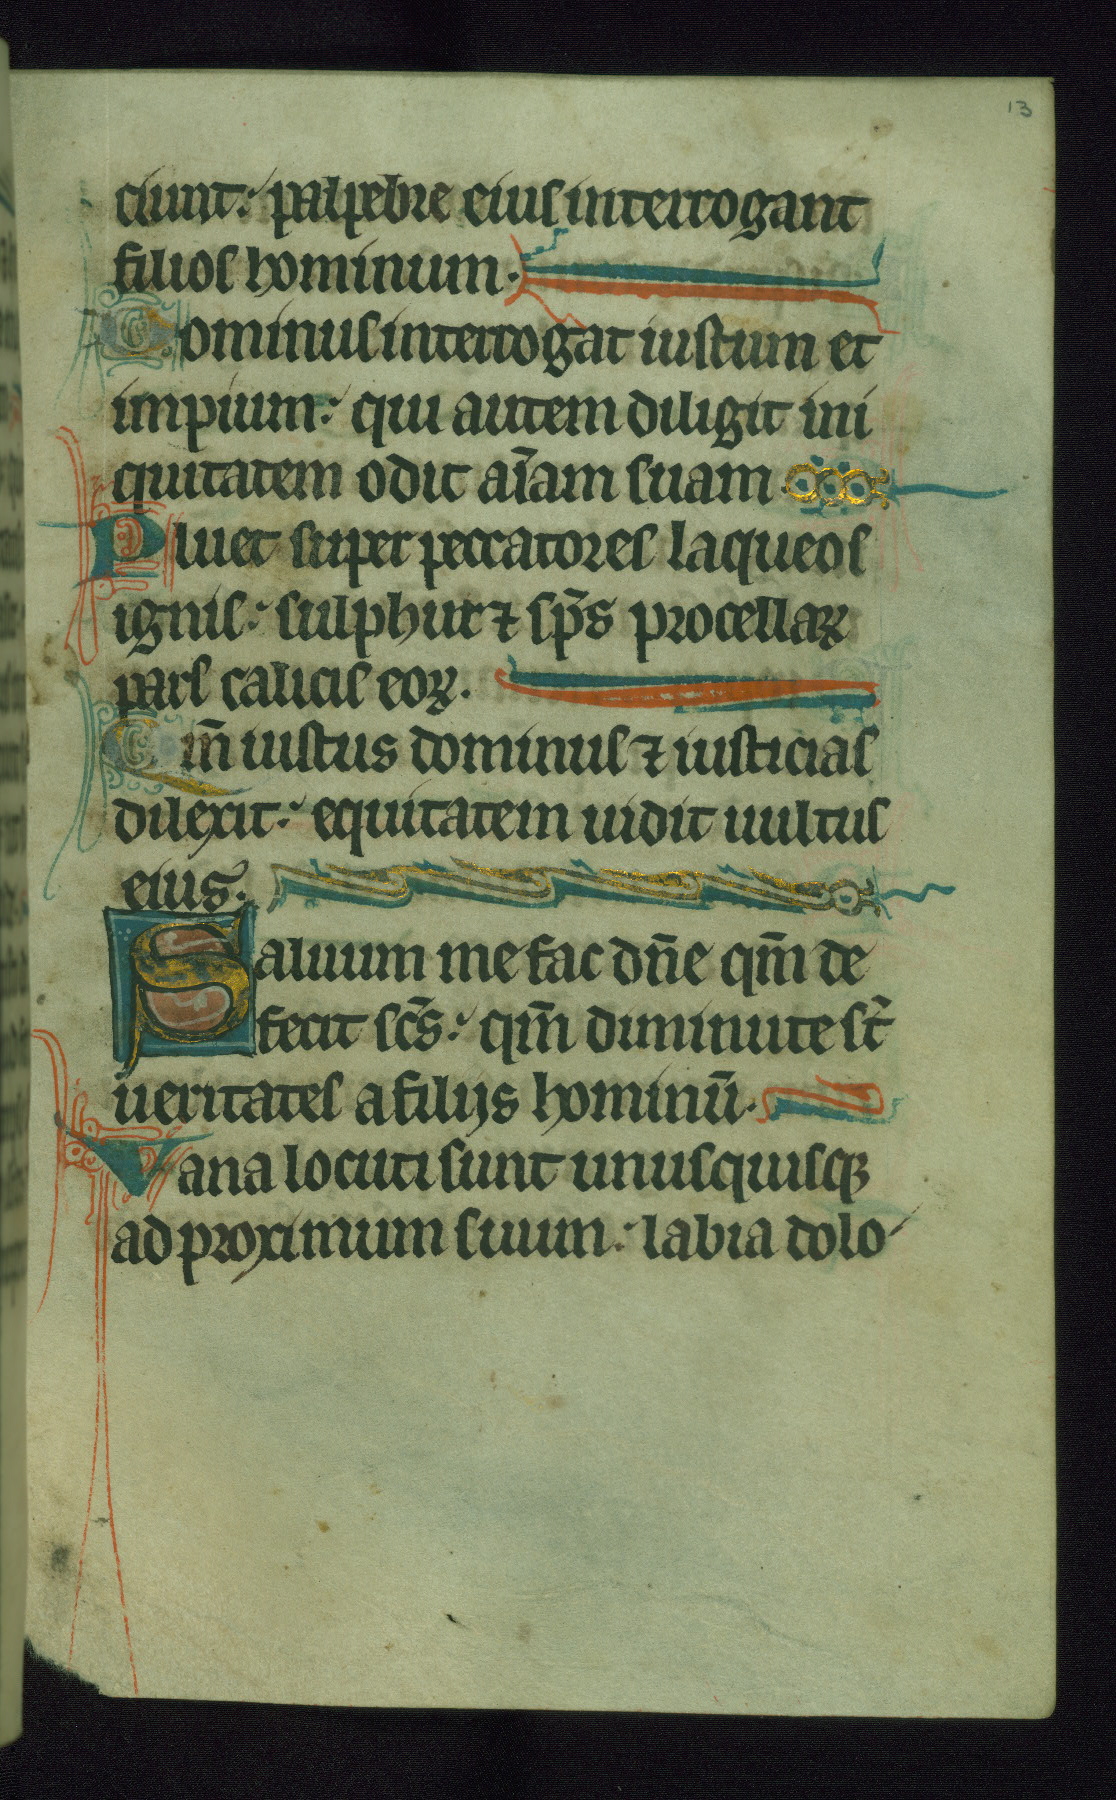 13
ciunt: palpebre eius interrogant
filios hominum.
Dominus interrogat iustum et
impium: qui autem diligit ini
quitatem odit aīam suam
Pluet super peccatores laqueos
ignis: sulphur ⁊ sp̄s procellaꝝ
pars calicis eoꝝ.
Qm̄ iustus dominus ⁊ iusticias
dilexit: equitatem uidit uultus
eius.
Saluum me fac dn̄e qm̄ de
fecit sc̄s: qm̄ diminute st̄
ueritates a filijs hominū.
Vana locuti sunt unusquisqꝫ
ad proximum suum: labia dolo